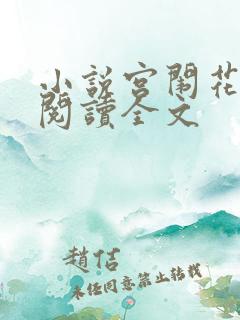 小說宮闈花
閱讀全文
趙佶
未经同意禁止转载